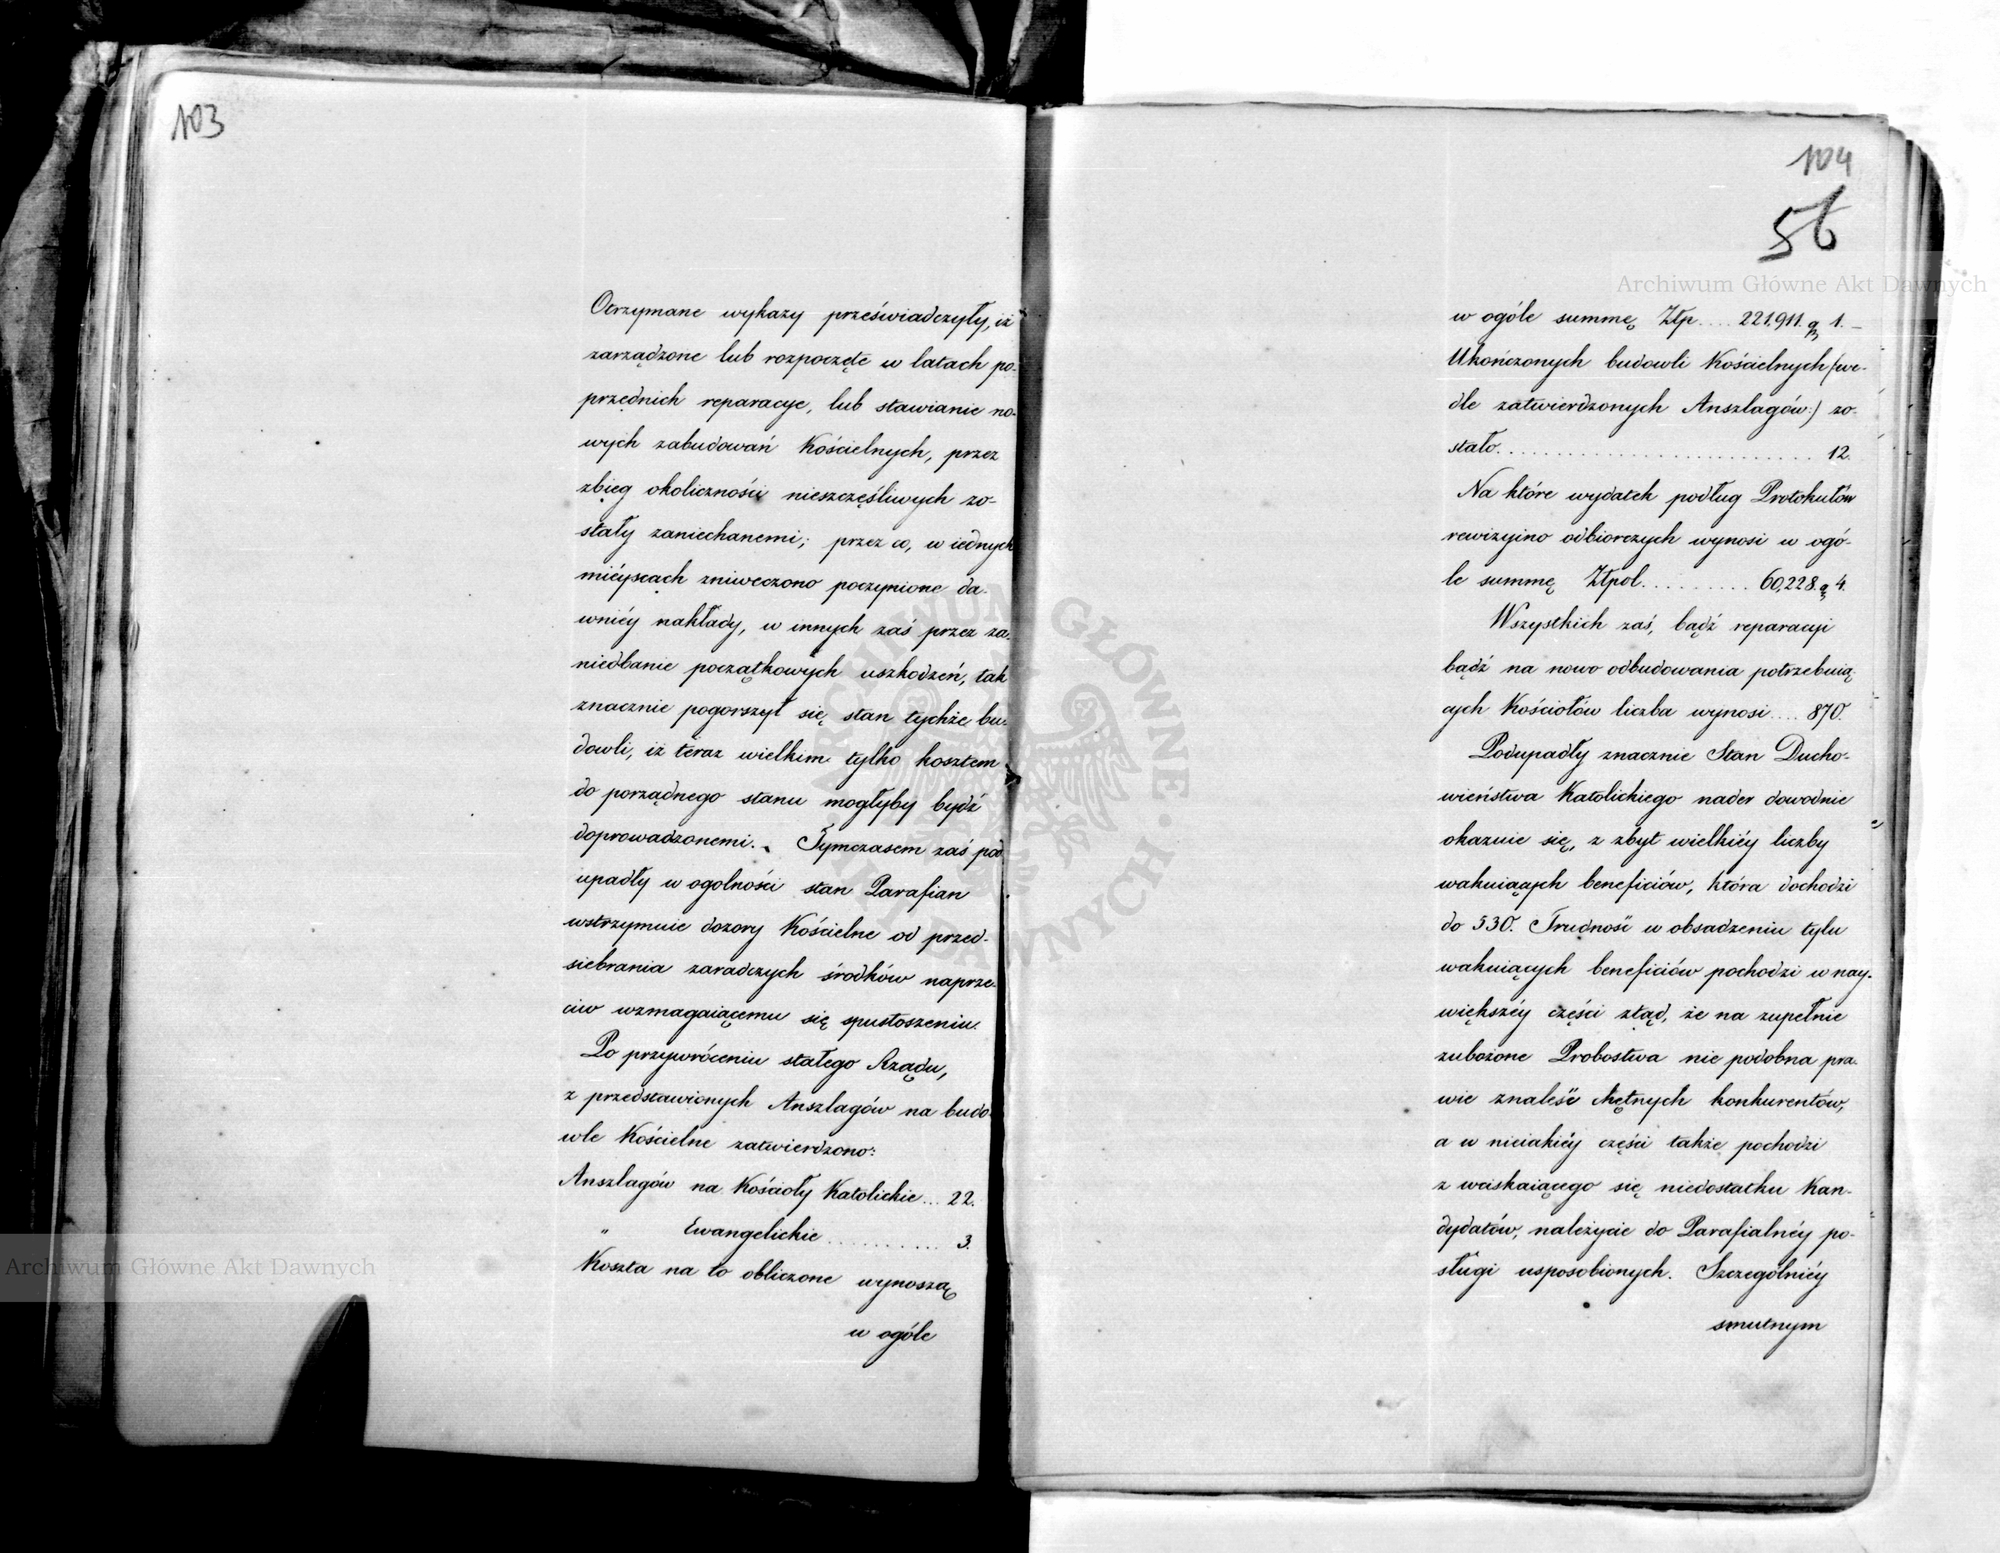 103
Otrzymane wykazy przeświadczyły, iż
zarządzone lub rozpoczęte w latach po-
przednich reparacye, lub stawianie no-
wych zabudowań Kościelnych, przez
zbieg okoliczności nieszczęśliwych zo-
stały zaniechanemi; przez co, w iednych
mieyscach zniweczono poczynione da-
wniéy nakłady, w innych zaś przez za-
niedbanie początkowych uszkodzeń, tak
znacznie pogorszył się stan tychże bu-
dowli, iż teraz wielkim tylko kosztem
do porządnego stanu mogłyby bydź
doprowadzonemi. Tymczasem zaś pod
upadły w ogolności stan Parafian
wstrzymuie dozory Kościelne od przed-
siebrania zaradczych środków naprze-
ciw wzmagaiącemu się spustoszeniu.
Po przywróceniu stałego Rządu,
z przedstawionych Anszlagów na budo-
wle Kościelne zatwierdzono:
Anszlagów na Kościoły Katolickie... 22.
" Ewangelickie........... 3.
Koszta na to obliczone wynoszą
w ogóle
104
56
w ogóle summę Złp.... 221,911. gr 1.—
Ukończonych budowli Kościelnych (we-
dle zatwierdzonych Anszlagów:) zo-
stało........................... 12.
Na które wydatek podług Protokułów
rewizyino odbiorczych wynosi w ogó-
le summę Złpol.......... 60,228. g 4.
Wszystkich zaś, bądź reparacyi
bądź na nowo odbudowania potrzebuią-
cych Kościołów liczba wynosi.... 870.
Podupadły znacznie Stan Ducho-
wieństwa Katolickiego nader dowodnie
okazuie się, z zbyt wielkiéy liczby
wakuiących beneficiów, która dochodzi
do 530. Trudność w obsadzeniu tylu
wakuiących beneficiów pochodzi w nay-
większéy części ztąd, że na zupełnie
zubożone Probostwa nie podobna pra-
wie znaleść chętnych konkurentów,
a w nieiakiéy części także pochodzi
z wciskaiącego się niedostatku Kan-
dydatów, należycie do Parafialnéy po-
sługi usposobionych. Szczególniéy
smutnym
Archiwum Główne Akt Dawnych
Archiwum Główne Akt Dawnych
ARCHIWUM GŁÓWNE AKT DAWNYCH